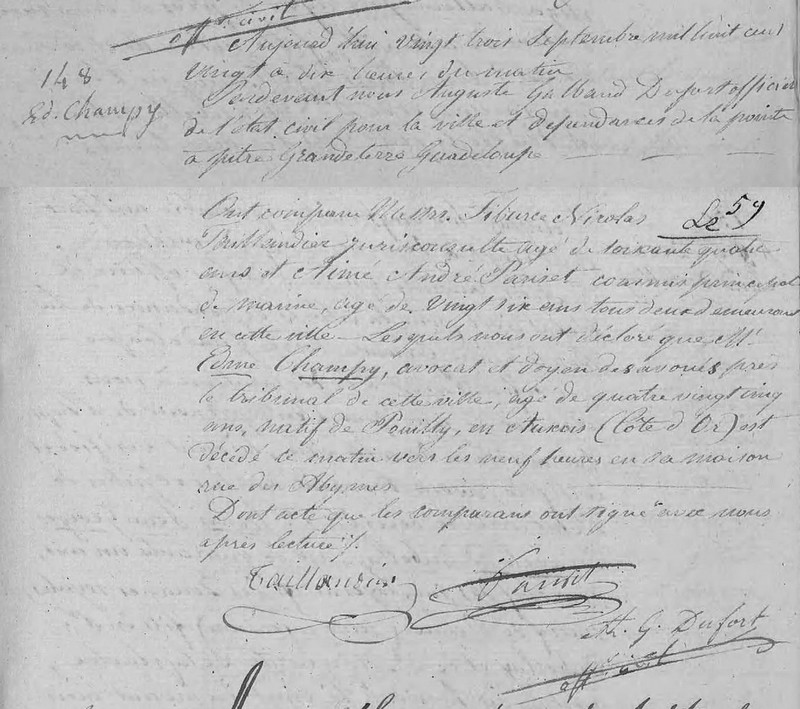 off. civil
148
Ed. Champy
Aujourd'hui vingt trois Septembre mil huit cent
vingt à dix heures du matin
Pardevant nous Auguste Galbaud Dufort officier
de l'état civil pour la ville et dépendances de la pointe
à pitre Grandeterre Guadeloupe
Ont comparu Mess. Tiburce Nicolas
Le 59
Taillandier jurisconsulte agé de soixante quatre
ans et Aimé André Pariset commis principal
de marine, agé de vingt six ans tous deux demeurans
en cette ville – Lesquels nous ont déclaré que M.
Edme Champy, avocat et doyen des avoués près
le tribunal de cette ville, agé de quatre vingt cinq
ans, natif de Pouilly, en Auxois (Côte d'Or) est
décédé ce matin vers les neuf heures en sa maison
rue des Abymes
Dont acte que les comparans ont signé avec nous
après lecture
Taillandier
Pariset
G. Dufort
off. civil